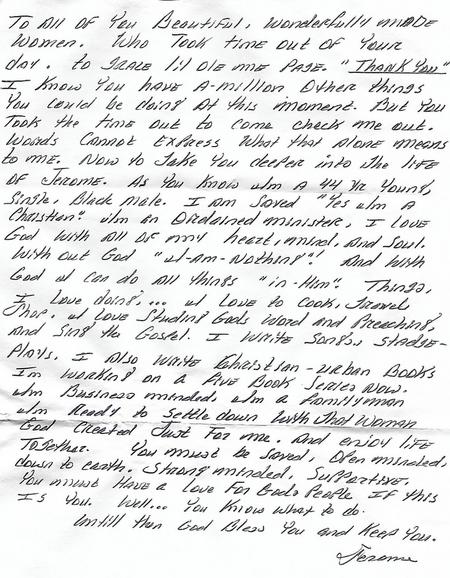 To All of You Beautiful, wonderfully made
Women. Who Took time out of Your
day. to Grace li'l ole me Page. "Thank You"
I Know You have A-million Other things
You could be doing At this moment. But You
Took the time out to come check me out.
Words Cannot Express What that Alone means
to me. Now to Take You deeper into the life
of Jerome. As You Know I'm A 44 Yr Young,
Single, Black male. I am Saved "Yes I'm A
Christian". I'm an Ordained minister, I Love
God with All of my heart, mind, And Soul.
With out God "I-am-Nothing"! And With
God I can do All things "in-Him". Things,
I Love doing,... I Love to Cook, Travel
Shop, I Love Studing Gods Word and Preaching,
And Sing the Gospel. I Write Songs, Stadge-
Plays. I Also Write Christian-Urban Books
I'm Working on a Five Book Series Now.
I'm Business minded, I'm a familyman
I'm Ready to Settle down With That Woman
God Created Just For me. And enjoy life
Together. You must be Saved, Open minded,
down to earth. Strong minded, Supportive.
You must Have a Love For Gods People If this
Is You. Well... You Know what to do.
Untill then God Bless You and Keep You.
Jerome